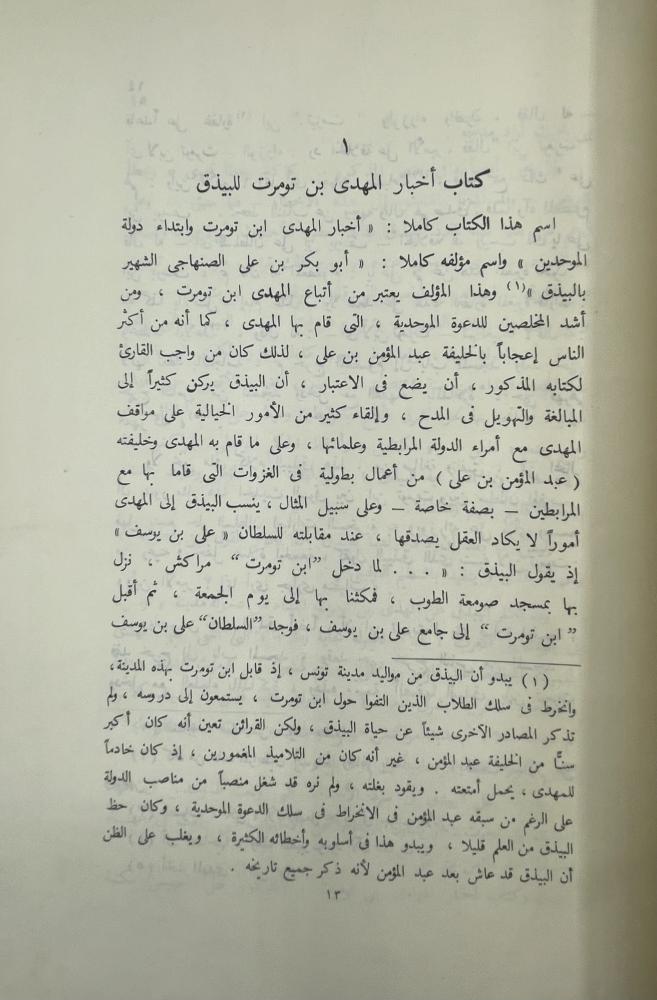 ١
كتاب أخبار المهدى بن تومرت للبيذق
اسم هذا الكتاب كاملا : « أخبار المهدى ابن تومرت وابتداء دولة
الموحدين » واسم مؤلفه كاملا : « أبو بكر بن على الصنهاجى الشهير
بالبيذق »(١) وهذا المؤلف يعتبر من أتباع المهدى ابن تومرت ، ومن
أشد المخلصين للدعوة الموحدية ، التى قام بها المهدى ، كما أنه من أكثر
الناس إعجاباً بالخليفة عبد المؤمن بن على ، لذلك كان من واجب القارئ
لكتابه المذكور ، أن يضع فى الاعتبار ، أن البيذق يركن كثيراً إلى
المبالغة والتهويل فى المدح ، وإلقاء كثير من الأمور الخيالية على مواقف
المهدى مع أمراء الدولة المرابطية وعلمائها ، وعلى ما قام به المهدى وخليفته
( عبد المؤمن بن على ) من أعمال بطولية فى الغزوات التى قاما بها مع
المرابطين — بصفة خاصة — وعلى سبيل المثال ، ينسب البيذق إلى المهدى
أموراً لا يكاد العقل يصدقها ، عند مقابلته للسلطان « على بن يوسف »
إذ يقول البيذق : « . . . لما دخل ”ابن تومرت“ مراكش ، نزل
بها بمسجد صومعة الطوب ، فمكثنا بها إلى يوم الجمعة ، ثم أقبل
”ابن تومرت“ إلى جامع على بن يوسف ، فوجد ”السلطان“ على بن يوسف
(١) يبدو أن البيذق من مواليد مدينة تونس ، إذ قابل ابن تومرت بهذه المدينة ،
وانخرط فى سلك الطلاب الذين التفوا حول ابن تومرت ، يستمعون إلى دروسه ، ولم
تذكر المصادر الآخرى شيئاً عن حياة البيذق ، ولكن القرائن تعين أنه كان أكبر
سنًّا من الخليفة عبد المؤمن ، غير أنه كان من التلاميذ المغمورين ، إذ كان خادماً
للمهدى ، يحمل أمتعته . ويقود بغلته ، ولم نره قد شغل منصباً من مناصب الدولة
على الرغم من سبقه عبد المؤمن فى الانخراط فى سلك الدعوة الموحدية ، وكان حظ
البيذق من العلم قليلا ، ويبدو هذا فى أساوبه وأخطائه الكثيرة ، ويغلب على الظن
أن البيذق قد عاش بعد عبد المؤمن لأنه ذكر جميع تاريخه .
١٣